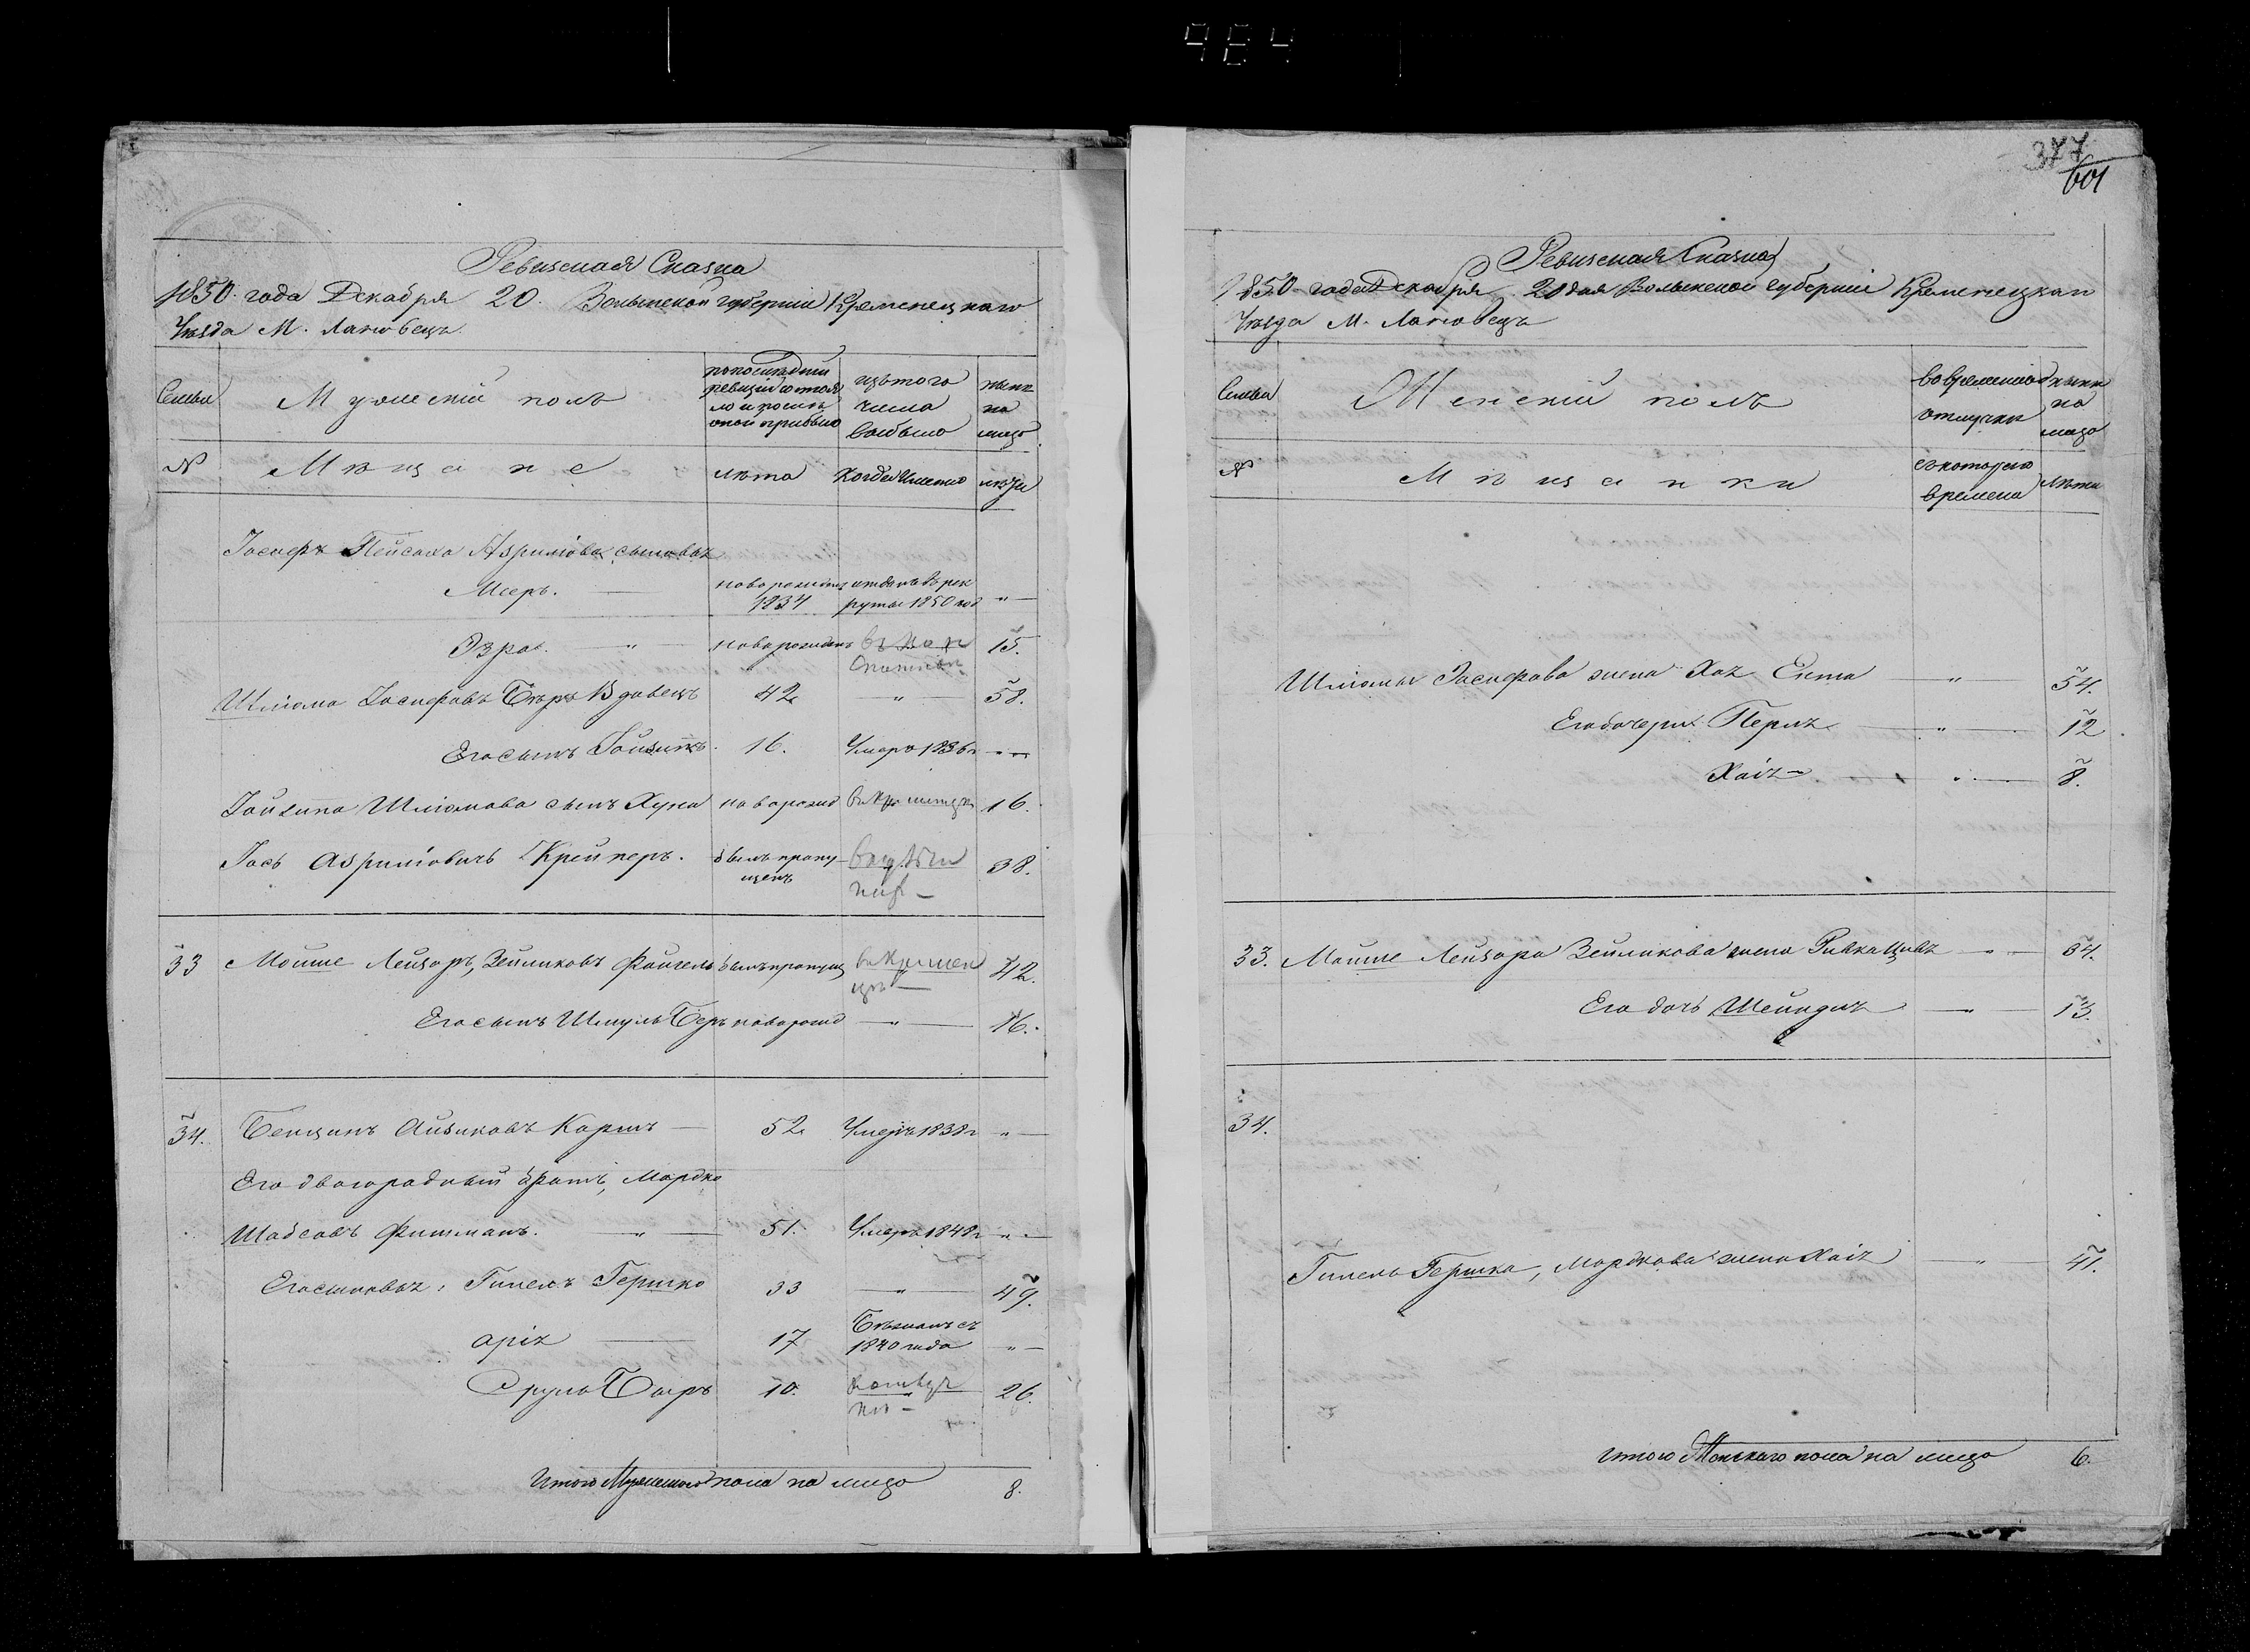 964
Ревизская Сказка
1850 года Декабря 20. Волынской губернии Кременецкаго
Уезда М. Лановецъ
Семьи
Мужескій полъ
по последней
ревизіи состоя
ло и после
оной прибыло
изъ того
числа
выбыло
ныне
на
лицо
№
Мѣщане
лѣта
когда именно
лѣта
Іосифа Пейсаха Азриліова сыновья
Меер.
новорожден
1834
отданъ въ рек
руты 1850 год
"
Эзра. "
новорожденъ
15.
Шліома Іосифовъ Бѣръ Вдовецъ
42
"
58.
Его сынъ Іойзипъ.
16.
Умеръ 1836 г
"
Іойзипа Шліомова сынъ Хуна
новорожд
16.
Іось Азриліовичъ Крейперъ.
былъ пропу
щенъ
38.
33
Мошше Лейзоръ, Зейликовъ Файгель
былъ пропущ
42.
Его сынъ Шмуль Беръ
новорожд
"
16.
34.
Бенционъ Айзиковъ Кормъ
52
Умеръ 1838 г
"
Его двоюродный братъ, Мордко
Шабсовъ Фишманъ. "
51.
Умеръ 1848 г
"
Его сыновья, Гилель Гершко
33
"
49.
Аріа
17
Бѣжалъ съ
1840 года
"
Сруль Беръ
10.
26.
Итого Мужескаго пола на лицо
8.
377
601
Ревизская Сказка
1850 года Декабря 20 дня Волынской губерніи Кременецкаго
Уезда М. Лановецъ
Семьи
Женскій полъ
во временной
отлучки
ныне
на
лицо
№
Мѣщанки
съ котораго
времени
лѣта
Шліомы Іосифова жена Хая Ента
"
54.
Его дочери Перля
"
12
Хаія
"
8.
33. Мошше Лейзора Зейликова жена Ривка Цивья
"
34.
Его дочь Шейндля
"
13.
34.
Гилель Гершка, Мордкова жена Хаія
"
41.
Итого Женскаго пола на лицо
6.